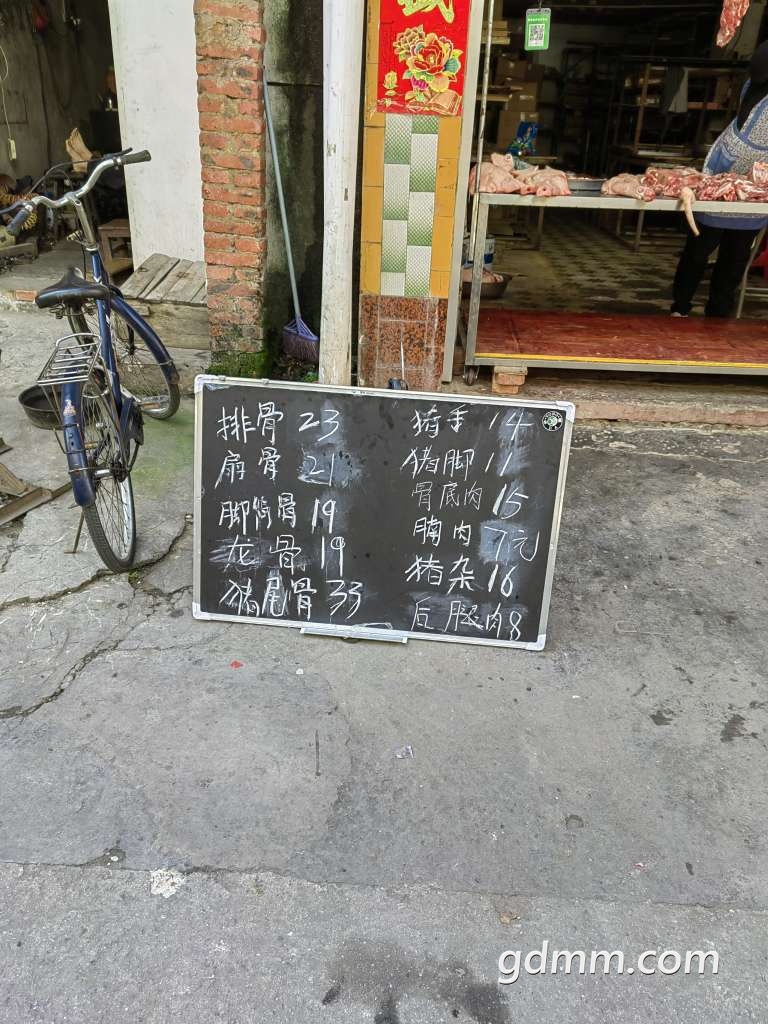 排骨 23
扇骨 21
脚筒骨 19
龙骨 19
猪尾骨 33
猪手 14
猪脚 11
骨底肉 15
腩肉 7元
猪杂 16
后腿肉 8
gdmm.com